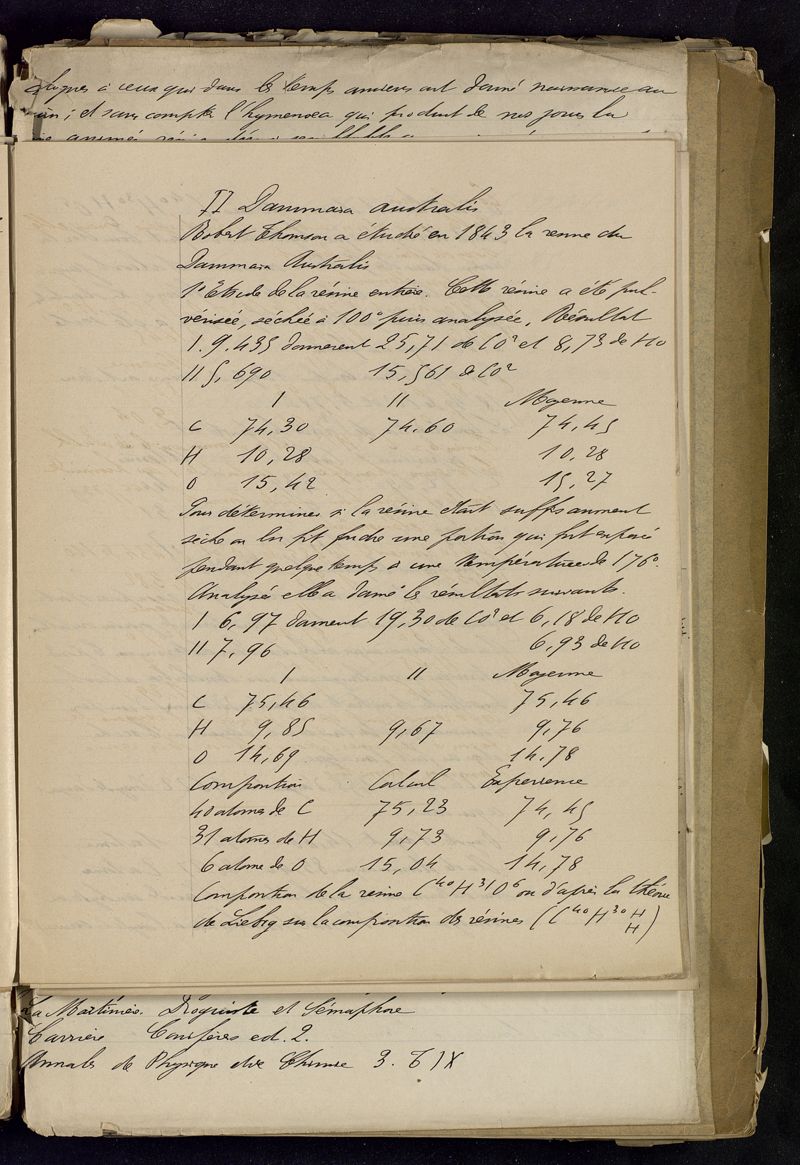 à ceux qui dans les temps anciens ont donné naissance au
; et sans compter l'hymenoea qui produit de nos jours la
II Dammara australis
Robert Thomson a étudié en 1843 la résine du
Dammara Australis
1° Etude de la résine entière. Cette résine a été pul-
vérisée, séchée à 100° puis analysée. Résultat
I. 9,435 donnerent 25,71 de CO² et 8,73 de HO
II 5,690 15,561 de CO²
I II Moyenne
C 74,30 74.60 74,45
H 10,28 10,28
O 15,42 15,27
Pour déterminer si la résine était suffisamment
sèche on en fit fondre une portion qui fut exposée
pendant quelque temps à une température de 176°.
Analysée elle a donné les résultats suivants.
I 6,97 donnent 19,30 de CO² et 6,18 de HO
II 7,96 6,93 de HO
I II Moyenne
C 75,46 75,46
H 9,85 9,67 9,76
O 14,69 14,78
Composition Calcul Expérience
40 atomes de C 75,23 74,45
31 atomes de H 9,73 9,76
6 atome de O 15,04 14,78
Composition de la résine C⁴⁰H³¹O⁶ ou d'après la théorie
de Liebig sur la composition des résines (C⁴⁰H³⁰ H
H)
La Martinière. Droguiste et Sémaphore
Carrière Conifères ed. 2.
Annales de Physique et de Chimie 3. T IX